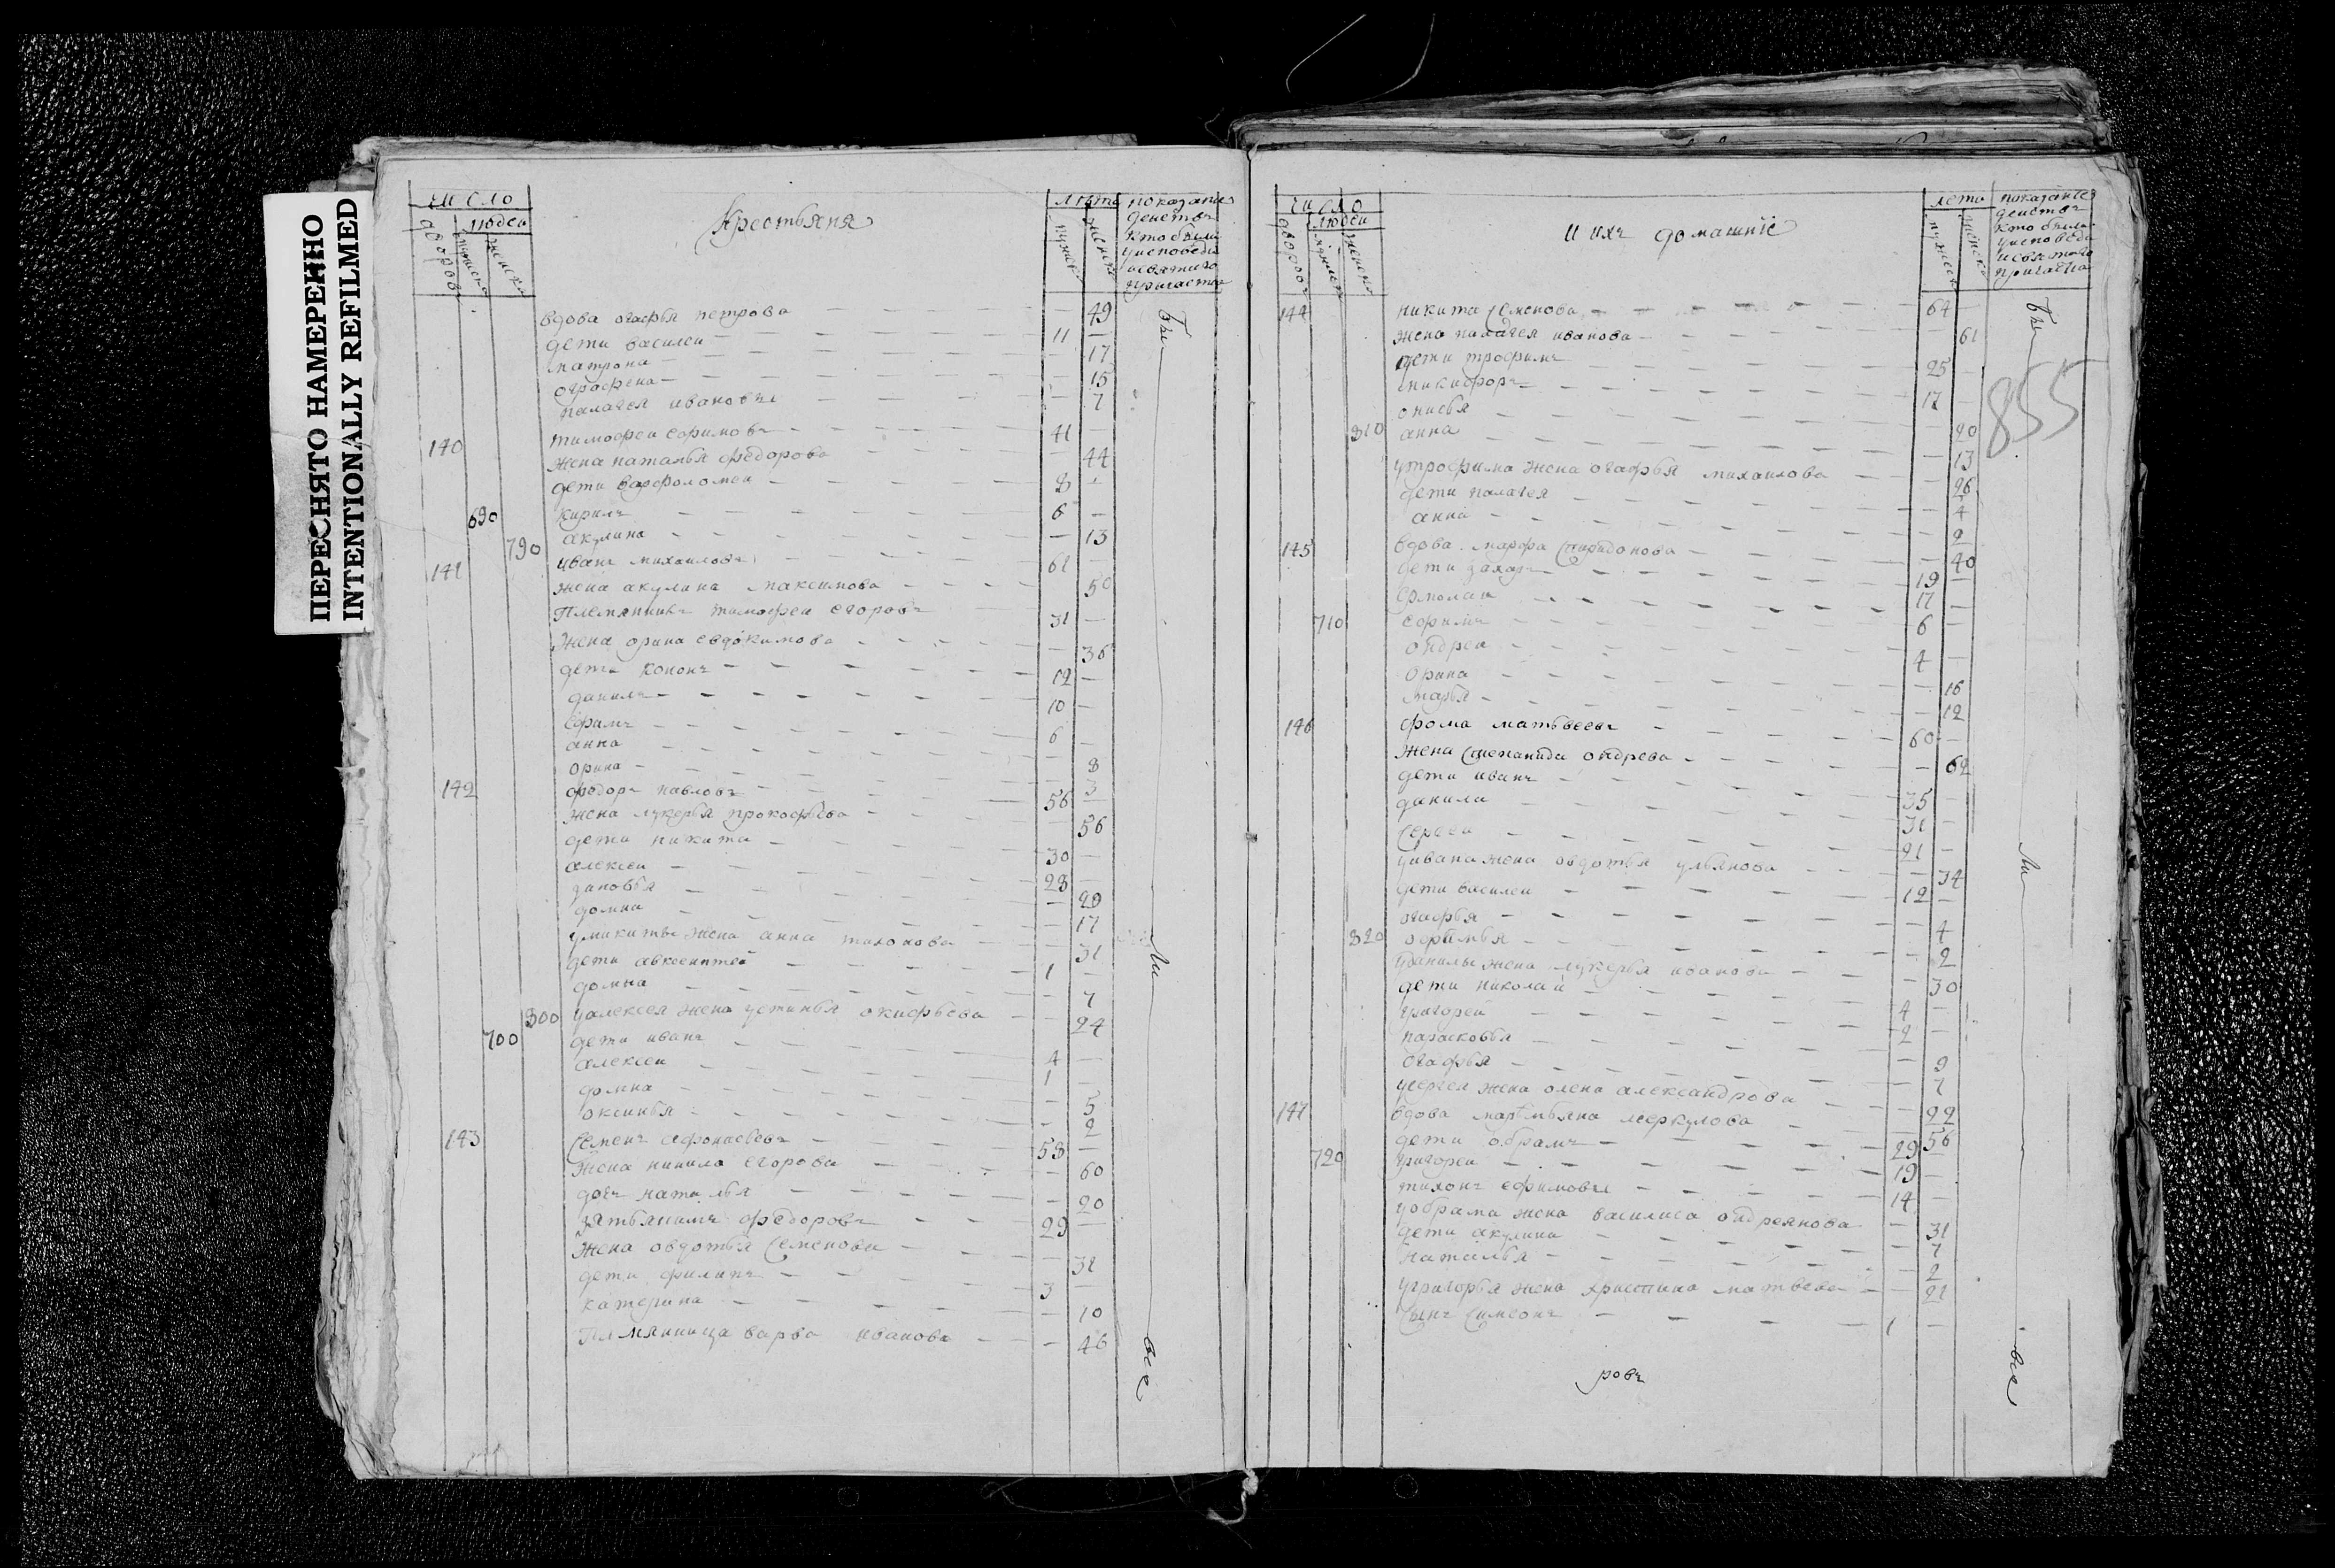 ПЕРЕСНЯТО НАМЕРЕННО
INTENTIONALLY REFILMED
число
дворовъ
людей
мужеска
женска
Крестьяня
лѣта
мужеск
женска
показание
действъ
кто были
уисповеди
исвятаго
причастия
вдова огафья петрова — 49
дети василеи 11 —
матрона — 17
ографена — 15
палагея ивановы — 7
140 тимофеи ефимовъ 41 —
жена наталья федорова — 44
дети варфоломеи 8 —
690 кирилъ 6 —
790 акулина — 13
141 иванъ михаиловъ 61 —
жена акулина максимова — 50
Племянникъ тимофеи егоровъ 31 —
жена орина евдокимова — 36
дети кононъ 12 —
данилъ 10 —
ефимъ 6 —
анна — 8
орина — 3
142 федоръ павловъ 56 —
жена лукерья прокофьева — 56
дети никита 30 —
алексеи 28 —
зиновья — 20
домна — 17
уникиты жена анна тихонова — 31
дети авксентей 1 —
домна — 7
800 уалексея жена устинья окифьева — 24
700 дети иванъ 4 —
алексеи 1 —
домна — 5
оксинья — 2
143 Семенъ афонасьевъ 58 —
жена нинила егорова — 60
дочь наталья — 20
зятьякимъ федоровъ 29 —
жена овдотья Семенова — 31
дети филипъ 3 —
катерина — 10
Плмяница варва иванова — 46
бы
ли
все
число
дворовъ
людеи
мужеск
женска
и ихъ домашнiе
лета
мужеск
женска
показание
действъ
кто были
уисповеди
исвятаго
причастия
855
144 никита Семенова 64 —
жена палагея иванова — 61
дети трофимъ 25 —
никифоръ 17 —
онисья — 20
810 анна — 13
утрофима жена огафья михаилова — 26
дети палагея — 4
анна — 2
145 вдова марфа Спиридонова — 40
дети захаръ 19 —
Ермолаи 17 —
710 ефимъ 6 —
ондреи 4 —
орина — 16
марья — 12
146 фома матвеевъ 60 —
жена Степанида ондрева — 62
дети иванъ 35 —
данила 31 —
Сергеи 21 —
уивана жена овдотья ульянова — 34
дети василеи 12 —
огафья — 4
820 офимья — 2
уданилы жена лукерья иванова — 30
дети николаи 4 —
григореи 2 —
парасковья — 9
огафья — 7
усергея жена олена александрова — 22
147 вдова мартемьяна меркулова — 56
дети обрамъ 29
720 григореи 19 —
тихонъ ефимовы 14 —
уобрама жена василиса ондреянова — 31
дети акулина — 7
наталья — 2
угригорья жена христина матвева — 21
Сынъ Симеонъ 1 —
ровъ
бы
ли
все